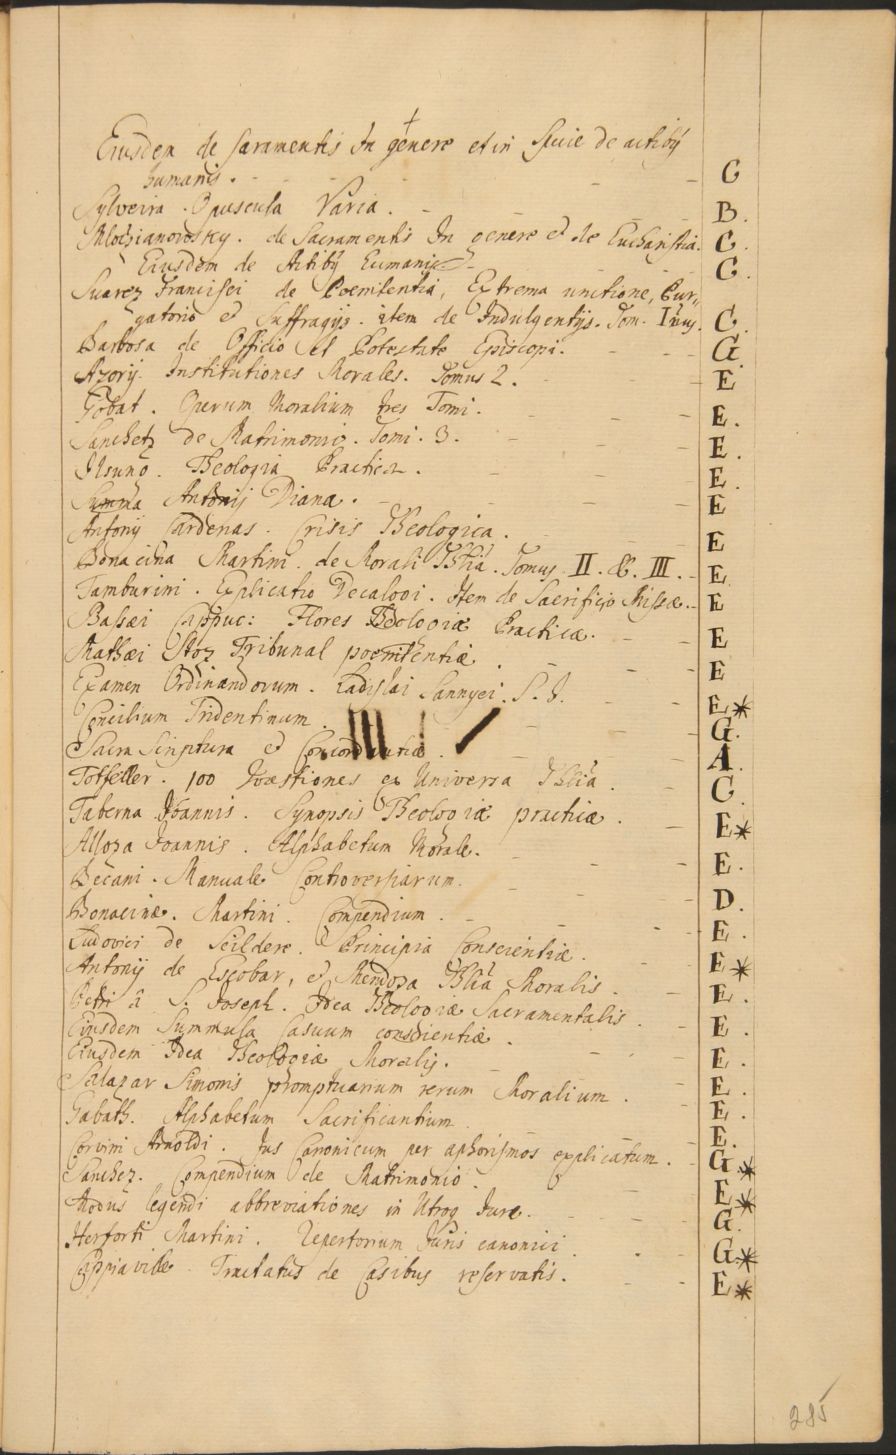 Eiusdem de Sacramentis In genere et in Specie de actibꝰ
humanis. C
Sylveira. Opuscula Varia. B.
Mlodzianowsky. de Sacramentis In genere et de Eucharistia. C.
Eiusdem de Actibꝰ humanis C.
Suarez Francisci de Poenitentia, Extrema unctione, Pur„
gatorio et Suffragijs. item de Indulgentijs. Tom. C.
Barbosa de Officio et Potestate Episcopi. G
Azorij Institutiones Morales. Tomus 2. E
Gobat. Operum Moralium tres Tomi. E.
Sanchetz de Matrimonio. Tomi. 3. E.
Ilsung. Theologia Practica. E.
Summa Antonij Diana. E
Antonij Cardenas. Crisis Theologica. E
Bonacina Martini. de Morali Thlia. Tomus II. & III. E
Tamburini. Explicatio Decalogi. Item de Sacrificio Missæ. E
Bassæi Cappuc: Flores Theologiæ Practicæ. E
Mathæi Stoz Tribunal poenitentiæ. E
Examen Ordinandorum. Ladislai Sannyei. S. J. E*
Concilium Tridentinum. G.
Sacra Scriptura et Concordantiæ. A.
100 Quæstiones ex Universa Thlia. C.
Taberna Joannis. Synopsis Theologiæ practicæ. E*
Alloza Joannis. Alphabetum Morale. E.
Becani. Manuale Controversiarum. D.
Bonacinæ. Martini. Compendium. E.
Ludovici de Scildere. Principia Conscientiæ. E*
Antonij de Escobar, et Mendoza Thlia Moralis. E.
Petri à S. Joseph. Idea Theologiæ Sacramentalis. E.
Eiusdem Summula Casuum conscientiæ. E.
Eiusdem Idea Theologiæ Moralis. E.
Salazar Simonis promptuarium rerum Moralium. E.
Gabath. Alphabetum Sacrificantium. E.
Corvini Arnoldi. Jus Canonicum per aphorismos explicatum. G*
Sanchez. Compendium de Matrimonio. E*
Modus legendi abbreviationes in Utroq Jure. G.
Herforti Martini. Repertorium Juris canonici. G*
Cappiaville. Tractatus de Casibus reservatis. E*
285